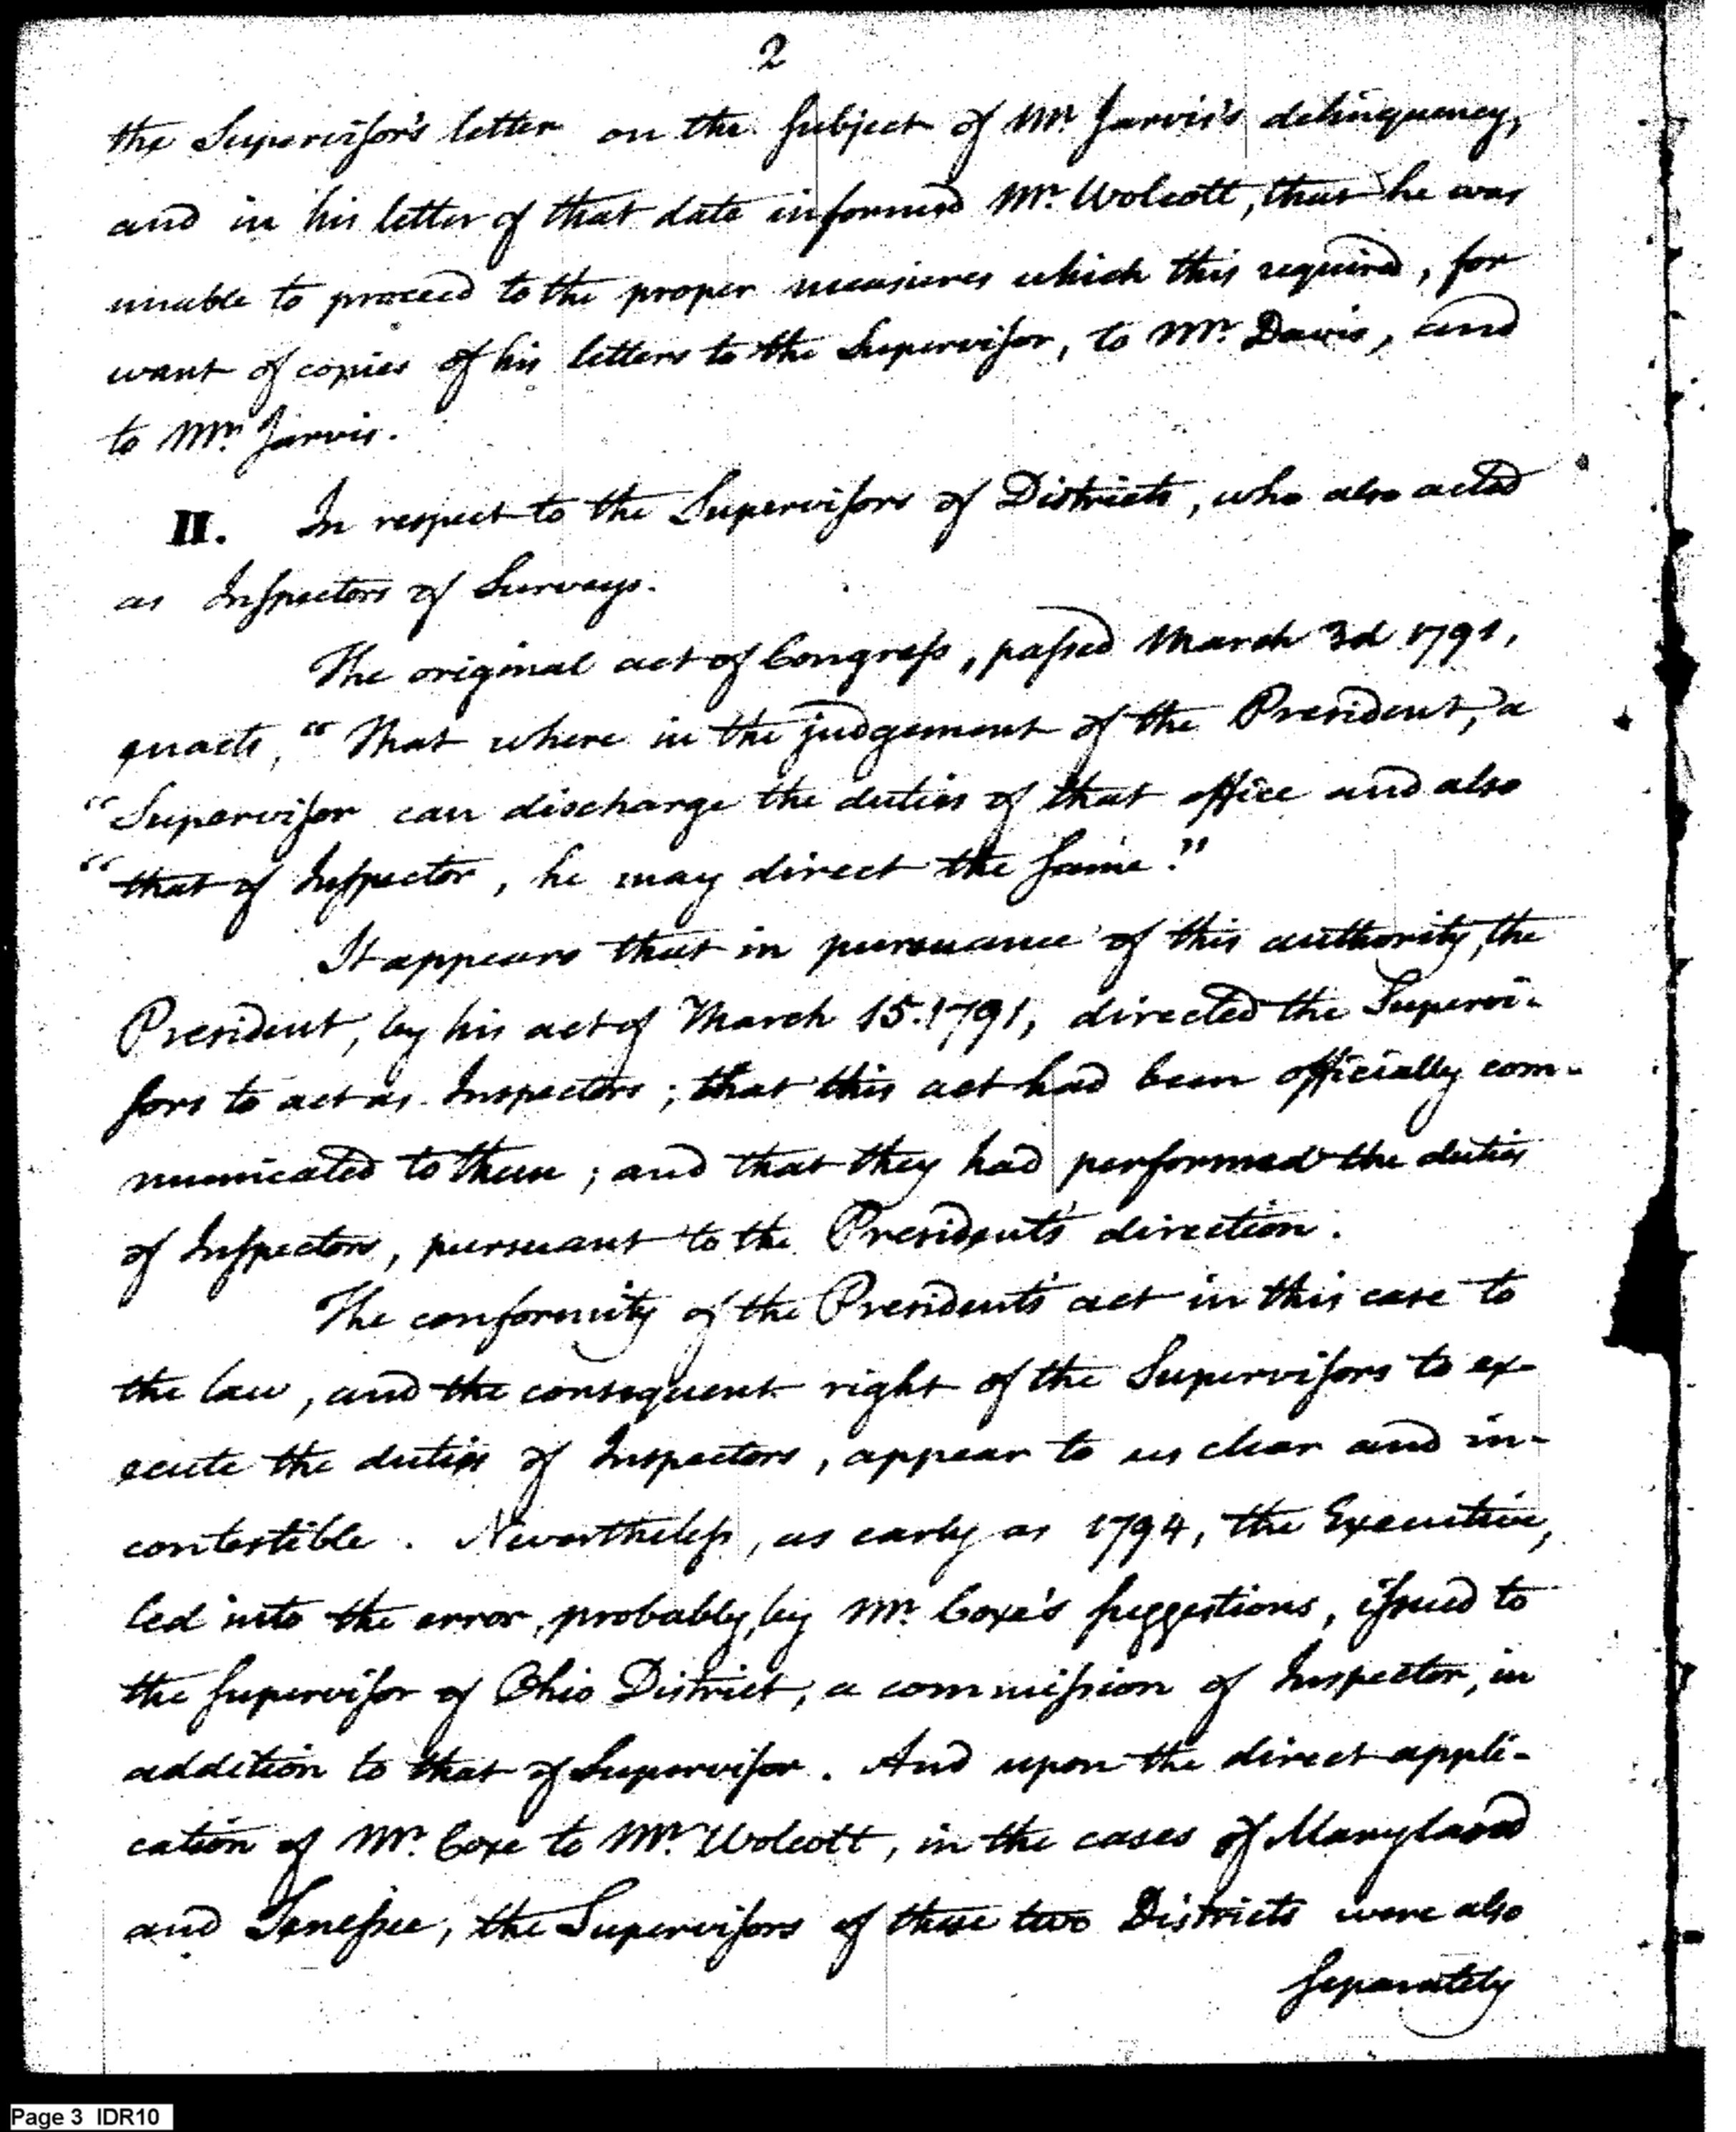 2
the Supervisor's letter on the subject of Mr. Jarvis's delinquency,
and in his letter of that date informed Mr. Wolcott, that he was
unable to proceed to the proper measures which this required, for
want of copies of his letters to the Supervisor, to Mr. Davis, and
to Mr. Jarvis.
II. In respect to the Supervisors of Districts, who also acted
as Inspectors of Surveys.
The original act of Congress, passed March 3d 1791,
enacts, "That where in the judgement of the President, a
"Supervisor can discharge the duties of that office and also
"that of Inspector, he may direct the same."
It appears that in pursuance of this authority, the
President, by his act of March 15. 1791, directed the Supervi-
sors to act as Inspectors; that this act had been officially com-
municated to them; and that they had performed the duties
of Inspectors, pursuant to the President's direction.
The conformity of the President's act in this case to
the law, and the consequent right of the Supervisors to ex-
ecute the duties of Inspectors, appear to us clear and in-
contestible. Nevertheless, as early as 1794, the Executive,
led into the error, probably, by Mr. Coxe's suggestions, issued to
the supervisor of Ohio District, a commission of Inspector, in
addition to that of Supervisor. And upon the direct appli-
cation of Mr. Coxe to Mr. Wolcott, in the cases of Maryland
and Tenessee, the Supervisors of these two Districts were also
separately
Page 3 IDR10